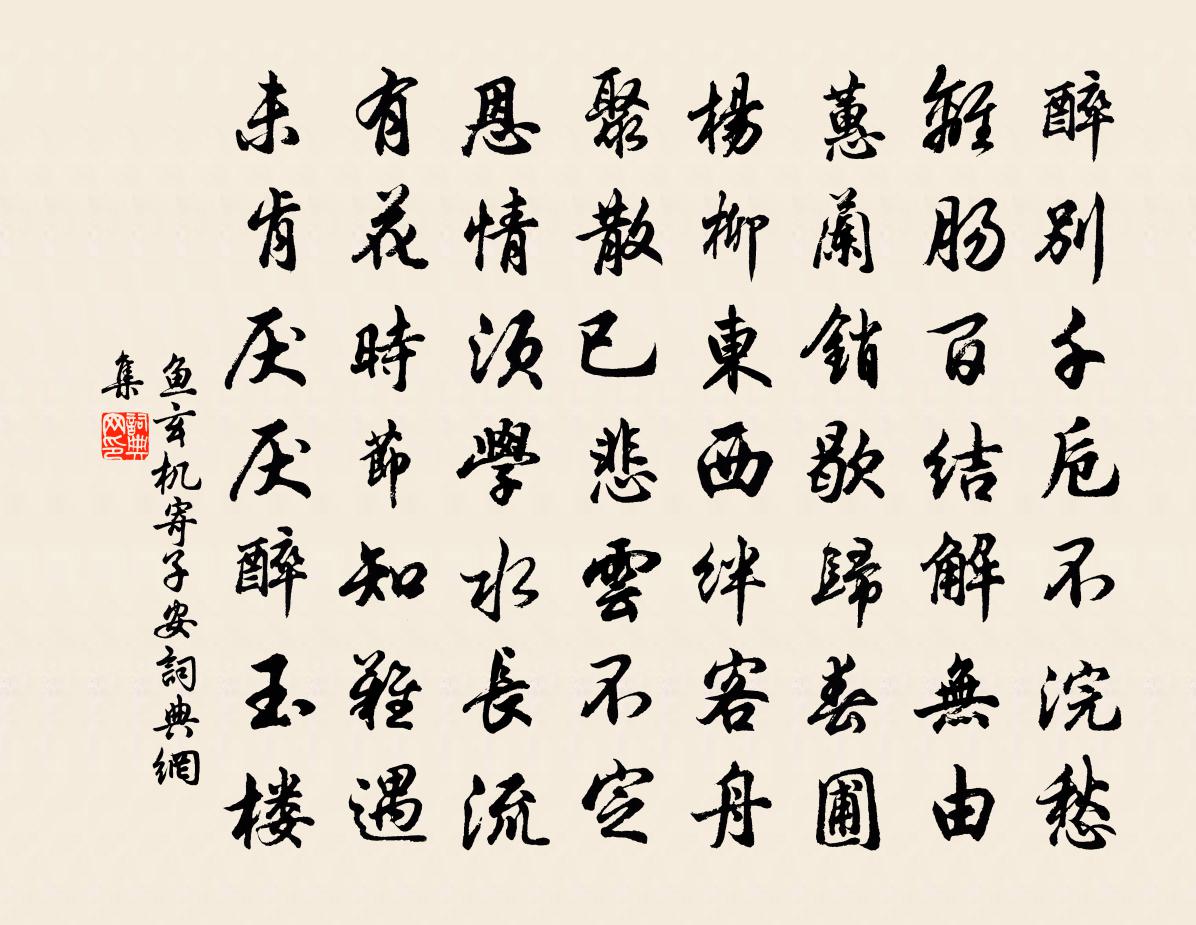 醉別千卮不浣愁
離肠百結解無由
蕙蘭銷歇歸春圃
楊柳東西絆客舟
聚散已悲雲不定
恩情須學水長流
有花時節知難遇
未肯厌厌醉玉楼
鱼玄机寄子安詞典網
集
詞典
网印